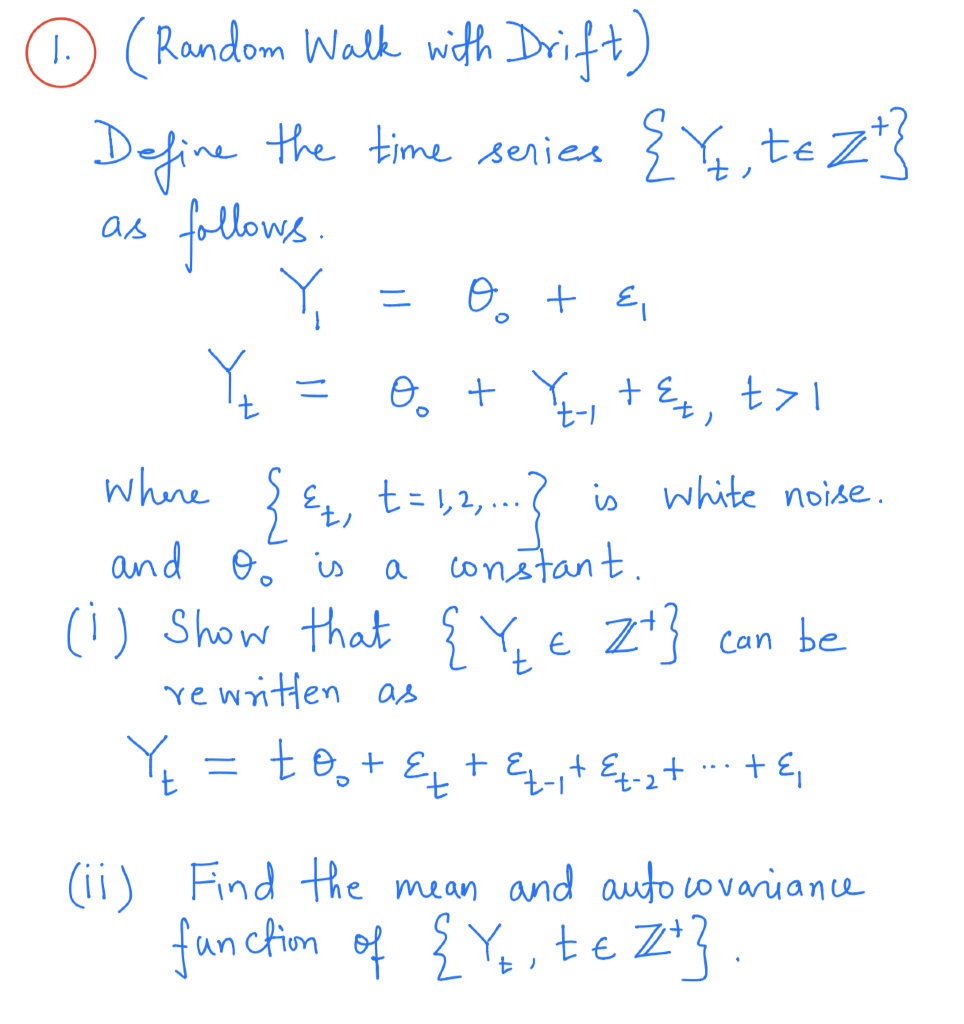 1. (Random Walk with Drift)
Define the time series {Y_t, t ∈ Z⁺}
as follows.
Y₁ = θ₀ + ε₁
Y_t = θ₀ + Y_{t-1} + ε_t, t > 1
where {ε_t, t = 1, 2, ...} is white noise.
and θ₀ is a constant.
(i) Show that {Y_t ∈ Z⁺} can be
rewritten as
Y_t = tθ₀ + ε_t + ε_{t-1} + ε_{t-2} + ... + ε₁
(ii) Find the mean and autocovariance
function of {Y_t, t ∈ Z⁺}.